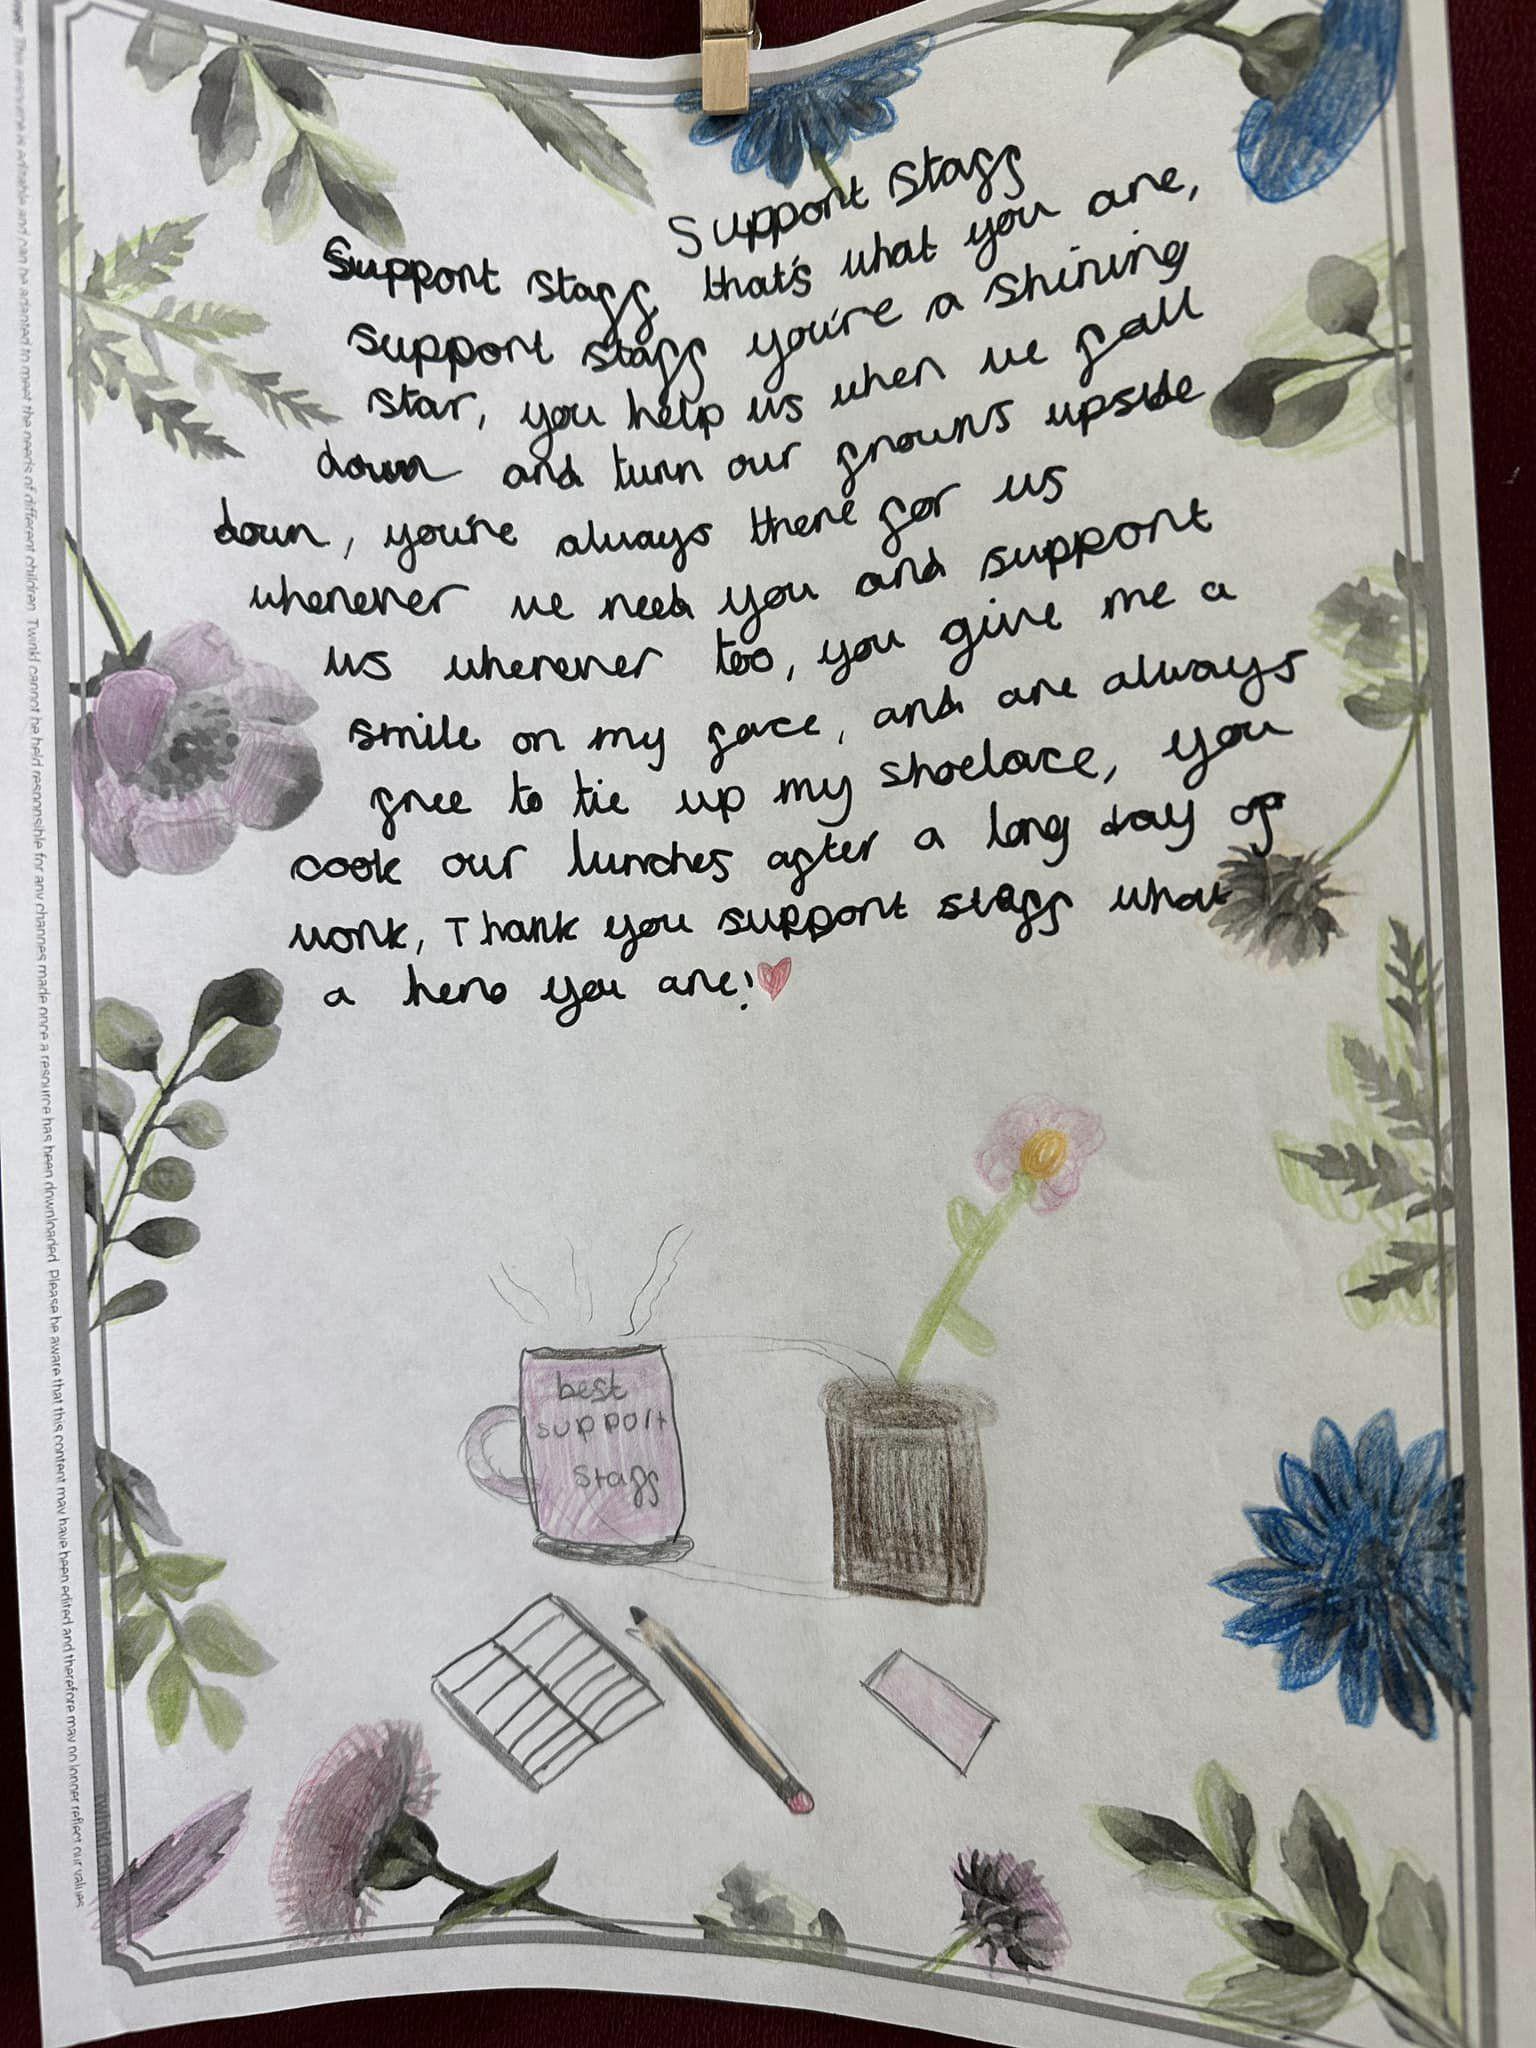 Support Staff
Support staff that's what you are,
support staff you're a shining
star, you help us when we fall
down and turn our frowns upside
down, you're always there for us
whenever we need you and support
us wherever too, you give me a
smile on my face, and are always
free to tie up my shoelace, you
cook our lunches after a long day of
work, Thank you support staff what
a hero you are!
best
support
staff
This resource is editable and can be adapted to meet the needs of different children. Twinkl cannot be held responsible for any changes made once a resource has been downloaded. Please be aware that this content may have been edited and therefore may no longer reflect our values
twinkl.com